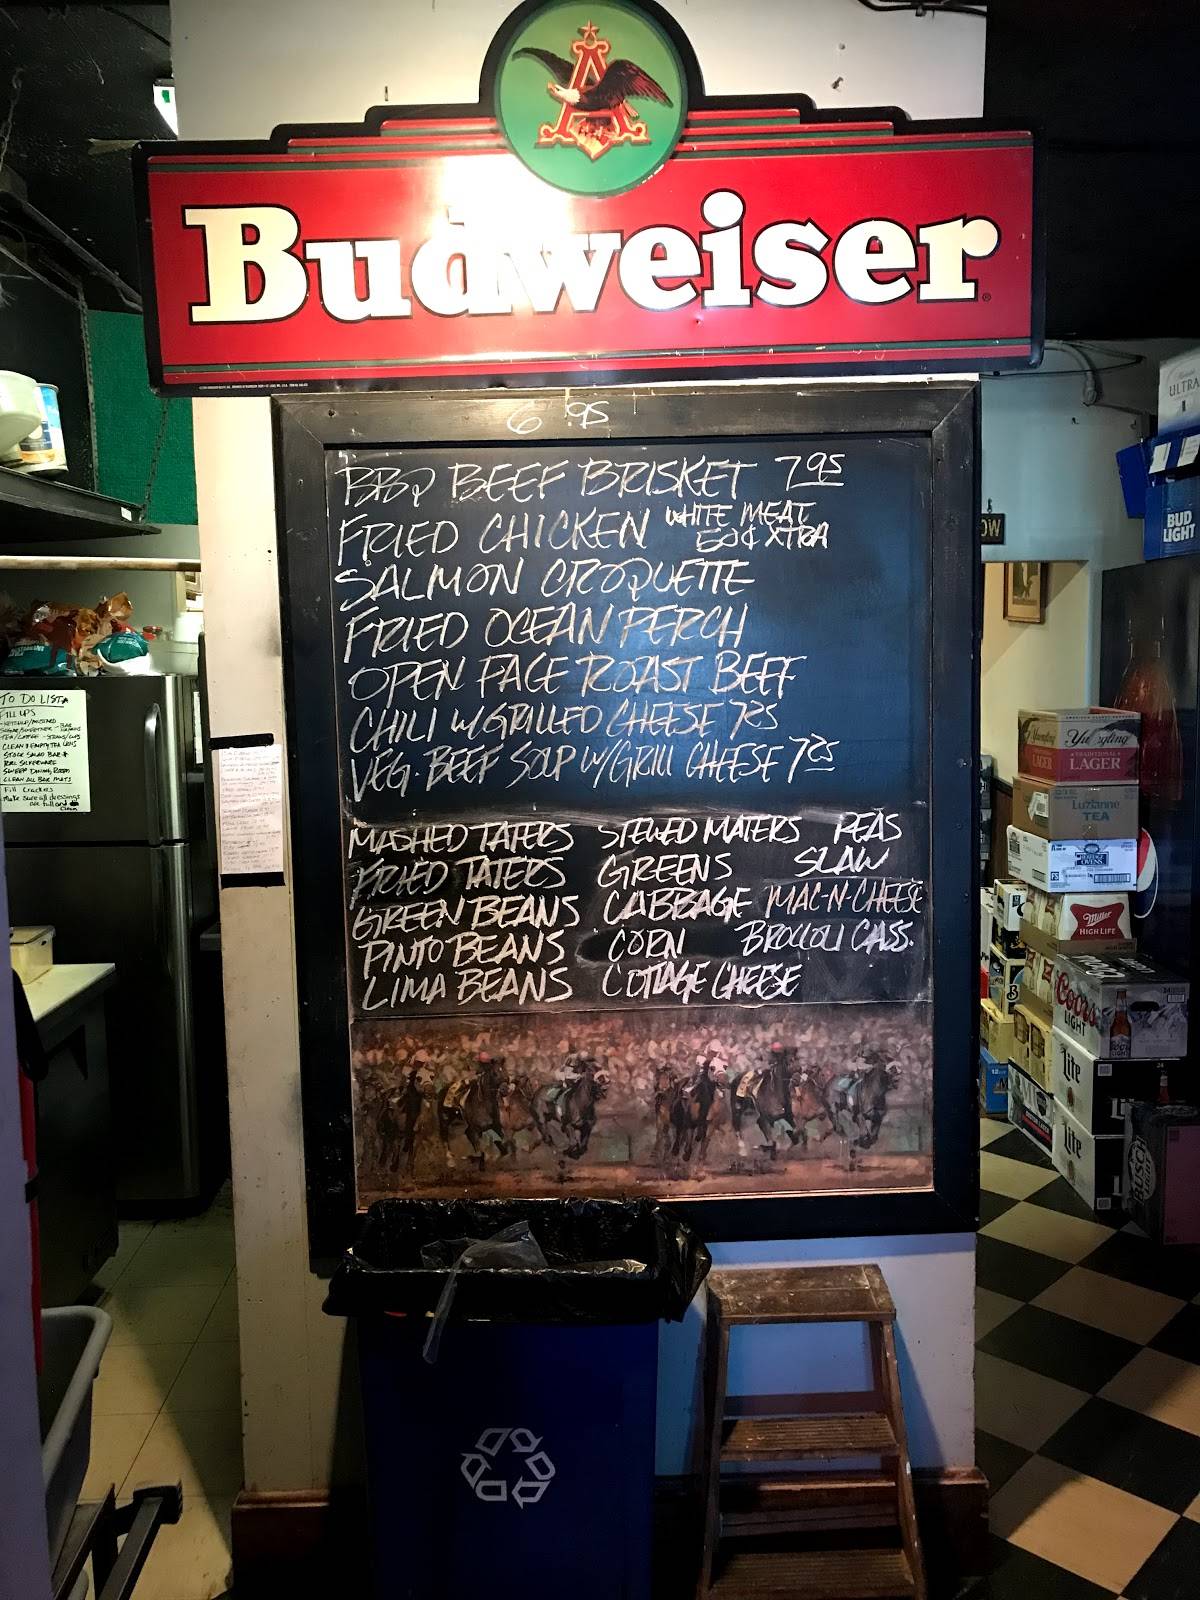 Budweiser
6.95
BBQ BEEF BRISKET 7.95
FRIED CHICKEN WHITE MEAT 50¢ XTRA
SALMON CROQUETTE
FRIED OCEAN PERCH
OPEN FACE ROAST BEEF
CHILI W/GRILLED CHEESE 7.25
VEG. BEEF SOUP W/GRILL CHEESE 7.25
MASHED TATERS STEWED MATERS PEAS
FRIED TATERS GREENS SLAW
GREEN BEANS CABBAGE MAC-N-CHEESE
PINTO BEANS CORN BROCCOLI CASS.
LIMA BEANS COTTAGE CHEESE
TO DO LIST
FILL UPS
CLEAN & EMPTY TEA URNS
STOCK SALAD BAR &
ROLL SILVERWARE
SWEEP DINING ROOM
CLEAN ALL BAR MATS
Fill Crackers
Make sure all dressings
are full and
Clean
ULTRA
BUD
LIGHT
OW
Yuengling
Yuengling
TRADITIONAL
LAGER
LAGER
Luzianne
TEA
Miller
HIGH LIFE
Coors
LIGHT
Coors
Lite
Lite
BUSCH